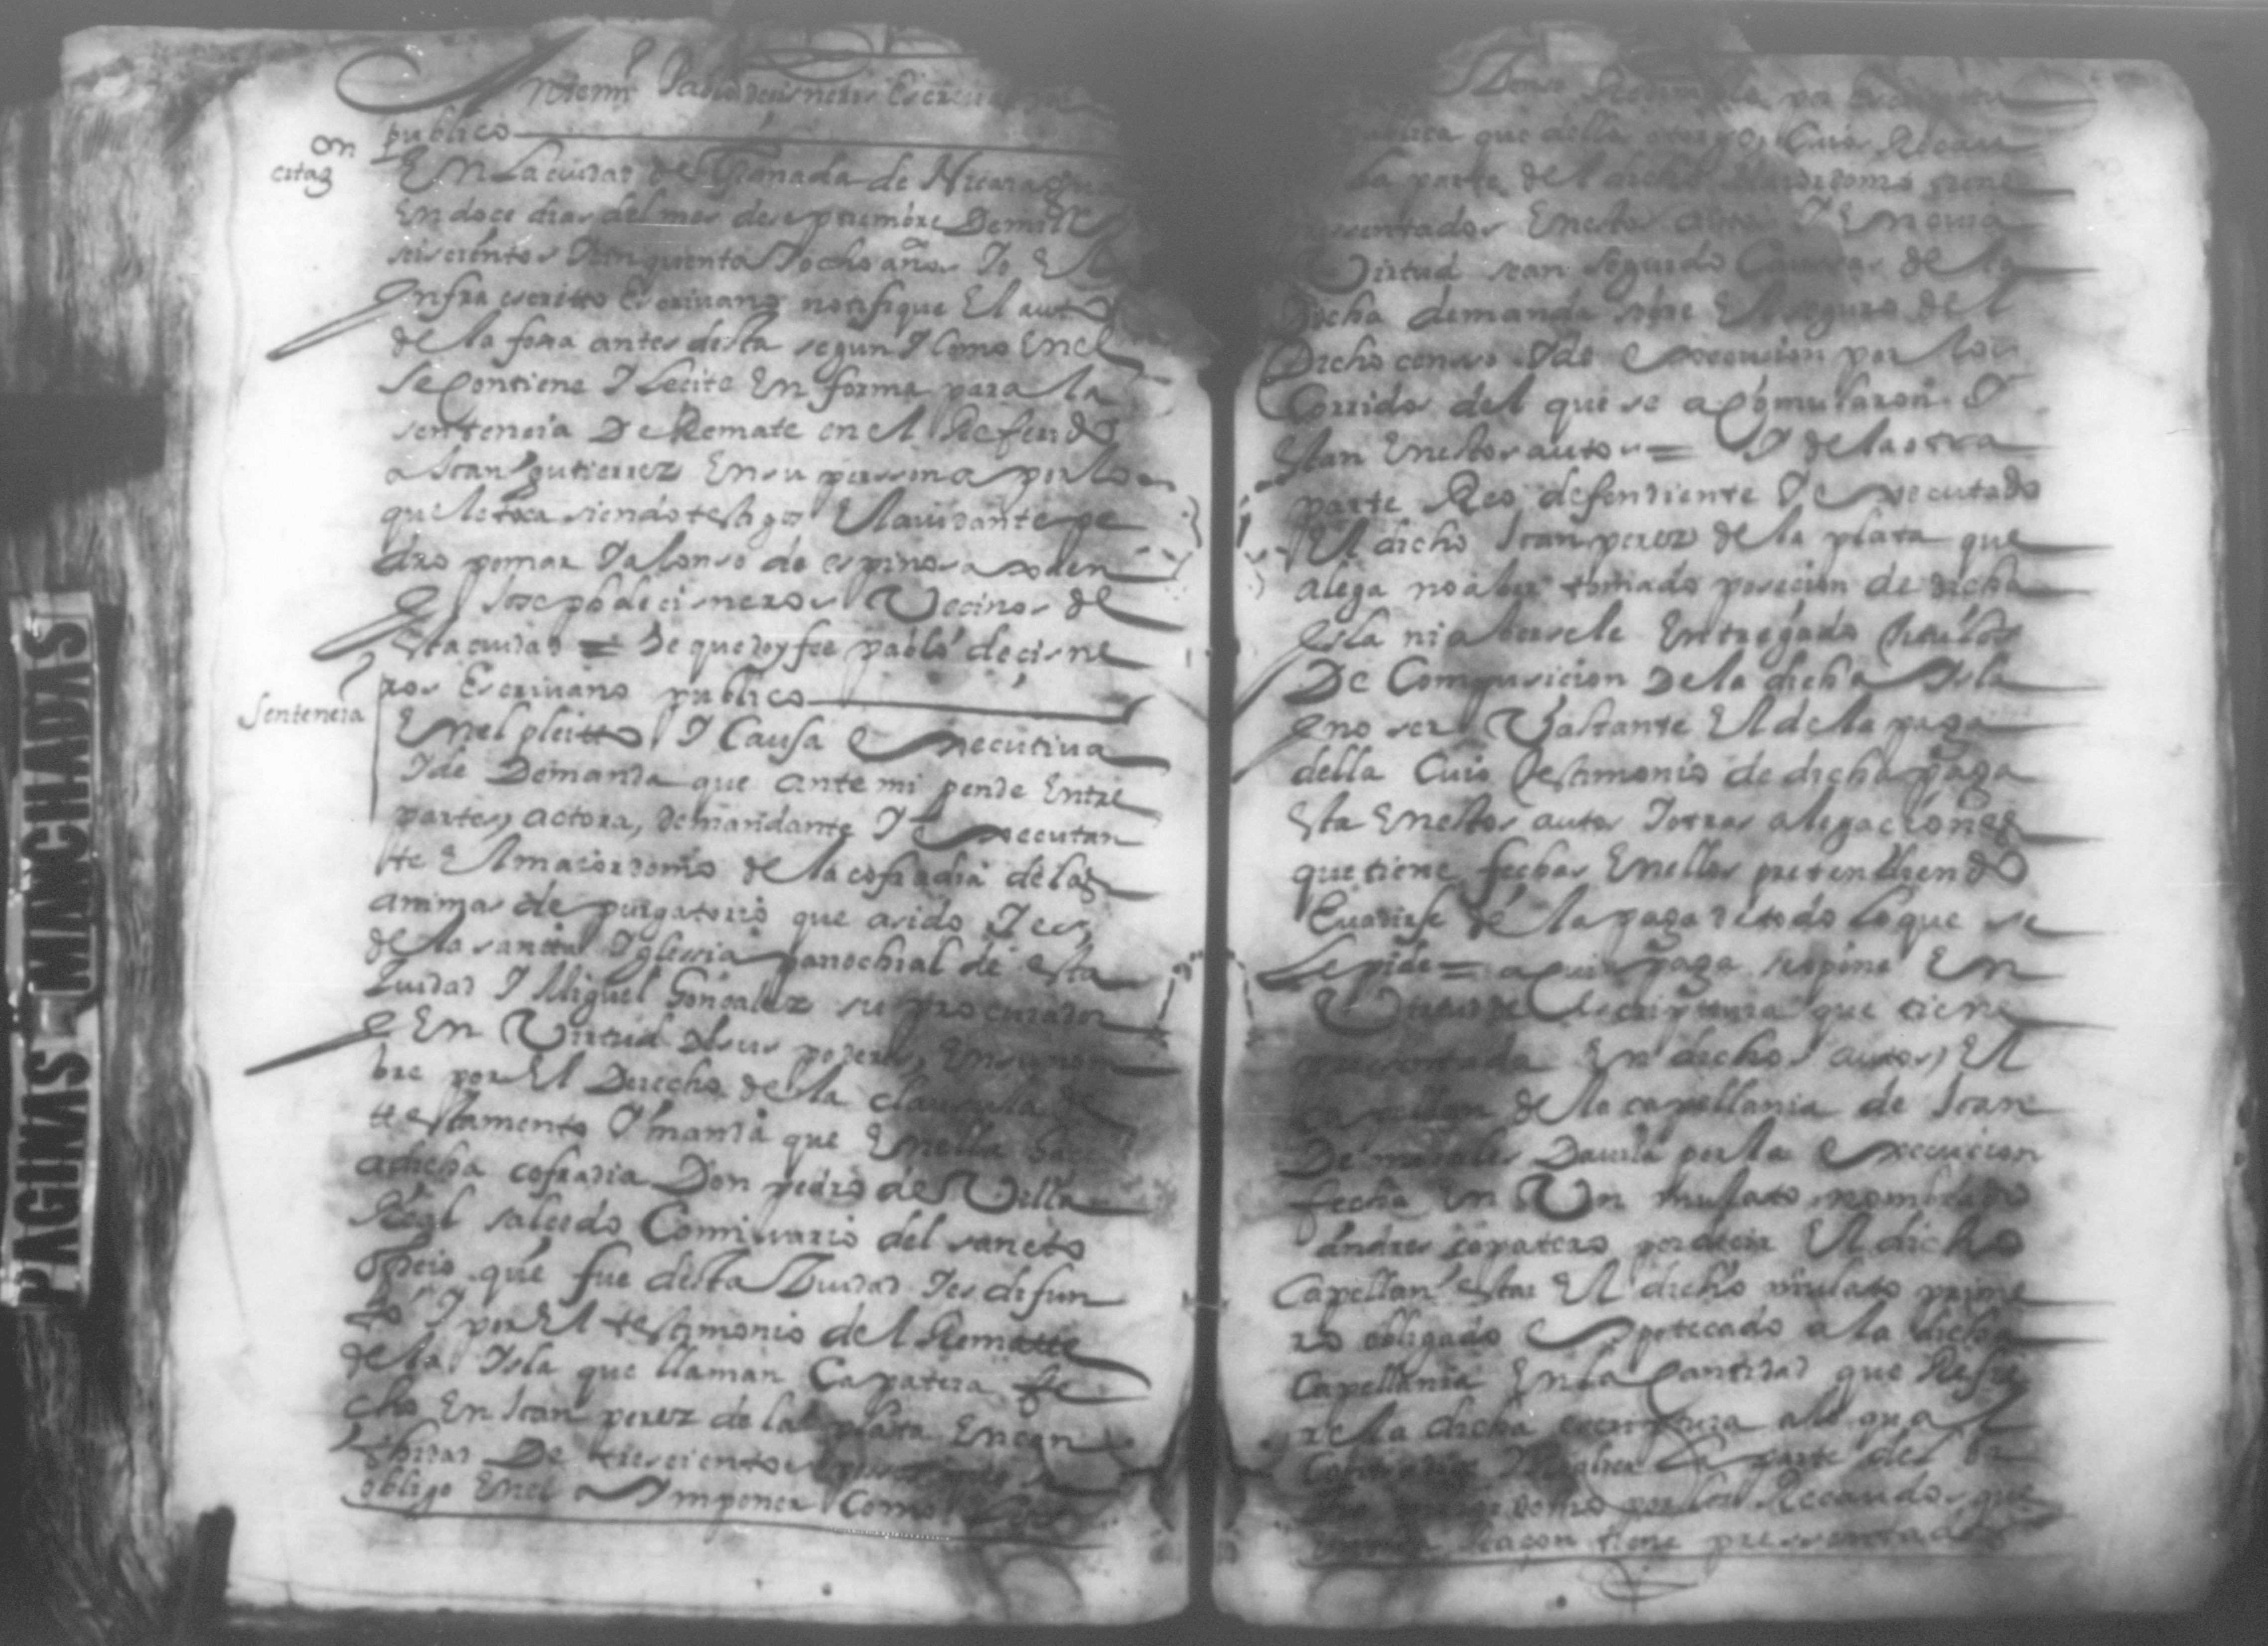 Pablo de cisneros Escrivano
publico
on
citaz
En La ciudad de Granada de Nicaragua
En doce dias del mes de septiembre De mill E
seiscientos I cinquenta I ocho años Io El
Infra escritto Escrivano notifique El auto
de la foxa antes desta segun I como En el
se contiene I le cite En forma para la
sentencia De Remate en el Referido
a Joan gutierrez En su perssona por lo
que le toca siendo testigos El ayudante pe
dro pomar I alonso de espinosa
E Joseph de cisneros Vecinos de
Esta ciudad = De que doy fee pablo de cisne
ros Escrivano publico
Sentencia
En el pleitto I Causa Executiva
I de Demanda que ante mi pende Entre
partes, actora, demandante I Executan
te El maiordomo de la cofradia de las
animas de purgatorio que a sido I es
de la sancta Iglessia parrochial de esta
Ciudad I Miguel Gonçalez su procurador
E En Virtud de sus poderes, En su nom
bre por El Derecho de la clausula de
ttestamento I manda que En ella hace
a dicha cofradia Don pedro de Villa
Real salcedo Comissario del sancto
officio que fue desta Ciudad I es difun
to I por El testimonio del Rematte
de la Isla que llaman Çapatera fe
cho En Joan perez de la plata En can
tidad De trescientos pesos
obligo En el a Imponer Como
por Escriptura
publica que della otorgo, Cuio Recau
La parte del dicho Maiordomo tiene
pressentados En estos autos I En cuia
Virtud sean seguido Caussas de la
Dicha demanda sobre El seguro del
Dicho censso I de Execucion por los
Corridos del que se acomularon I
Estan En estos autos = I de la otra
parte Reo defendiente I Executado
El dicho Joan perez de la plata que
alega no aber tomado posecion de dicha
Isla ni aberse le Entregado titulos
De Composicion De la dicha Isla
E no ser Vastante El de la paga
della Cuio testimonio de dicha paga
Esta En estos autos I otras alegaciones
que tiene fechas En ellos pretendiendo
Evadirse de la paga de todo lo que se
Le pide = a cuia paga se opone En
Virtud de Escriptura que tiene
pressentada En dichos autos, El
Capellan de la capellania de Joan
De morales Davila por la Execucion
fecha En Un mulato nombrado
andres çapatero por decir El dicho
Capellan estar El dicho mulato prime
ro obligado E Ipotecado a la dicha
Capellania En la Cantidad que Refie
re la dicha escriptura a lo qual
La parte del
por los Recaudos que
tiene pressentados
PAGINAS MANCHADAS